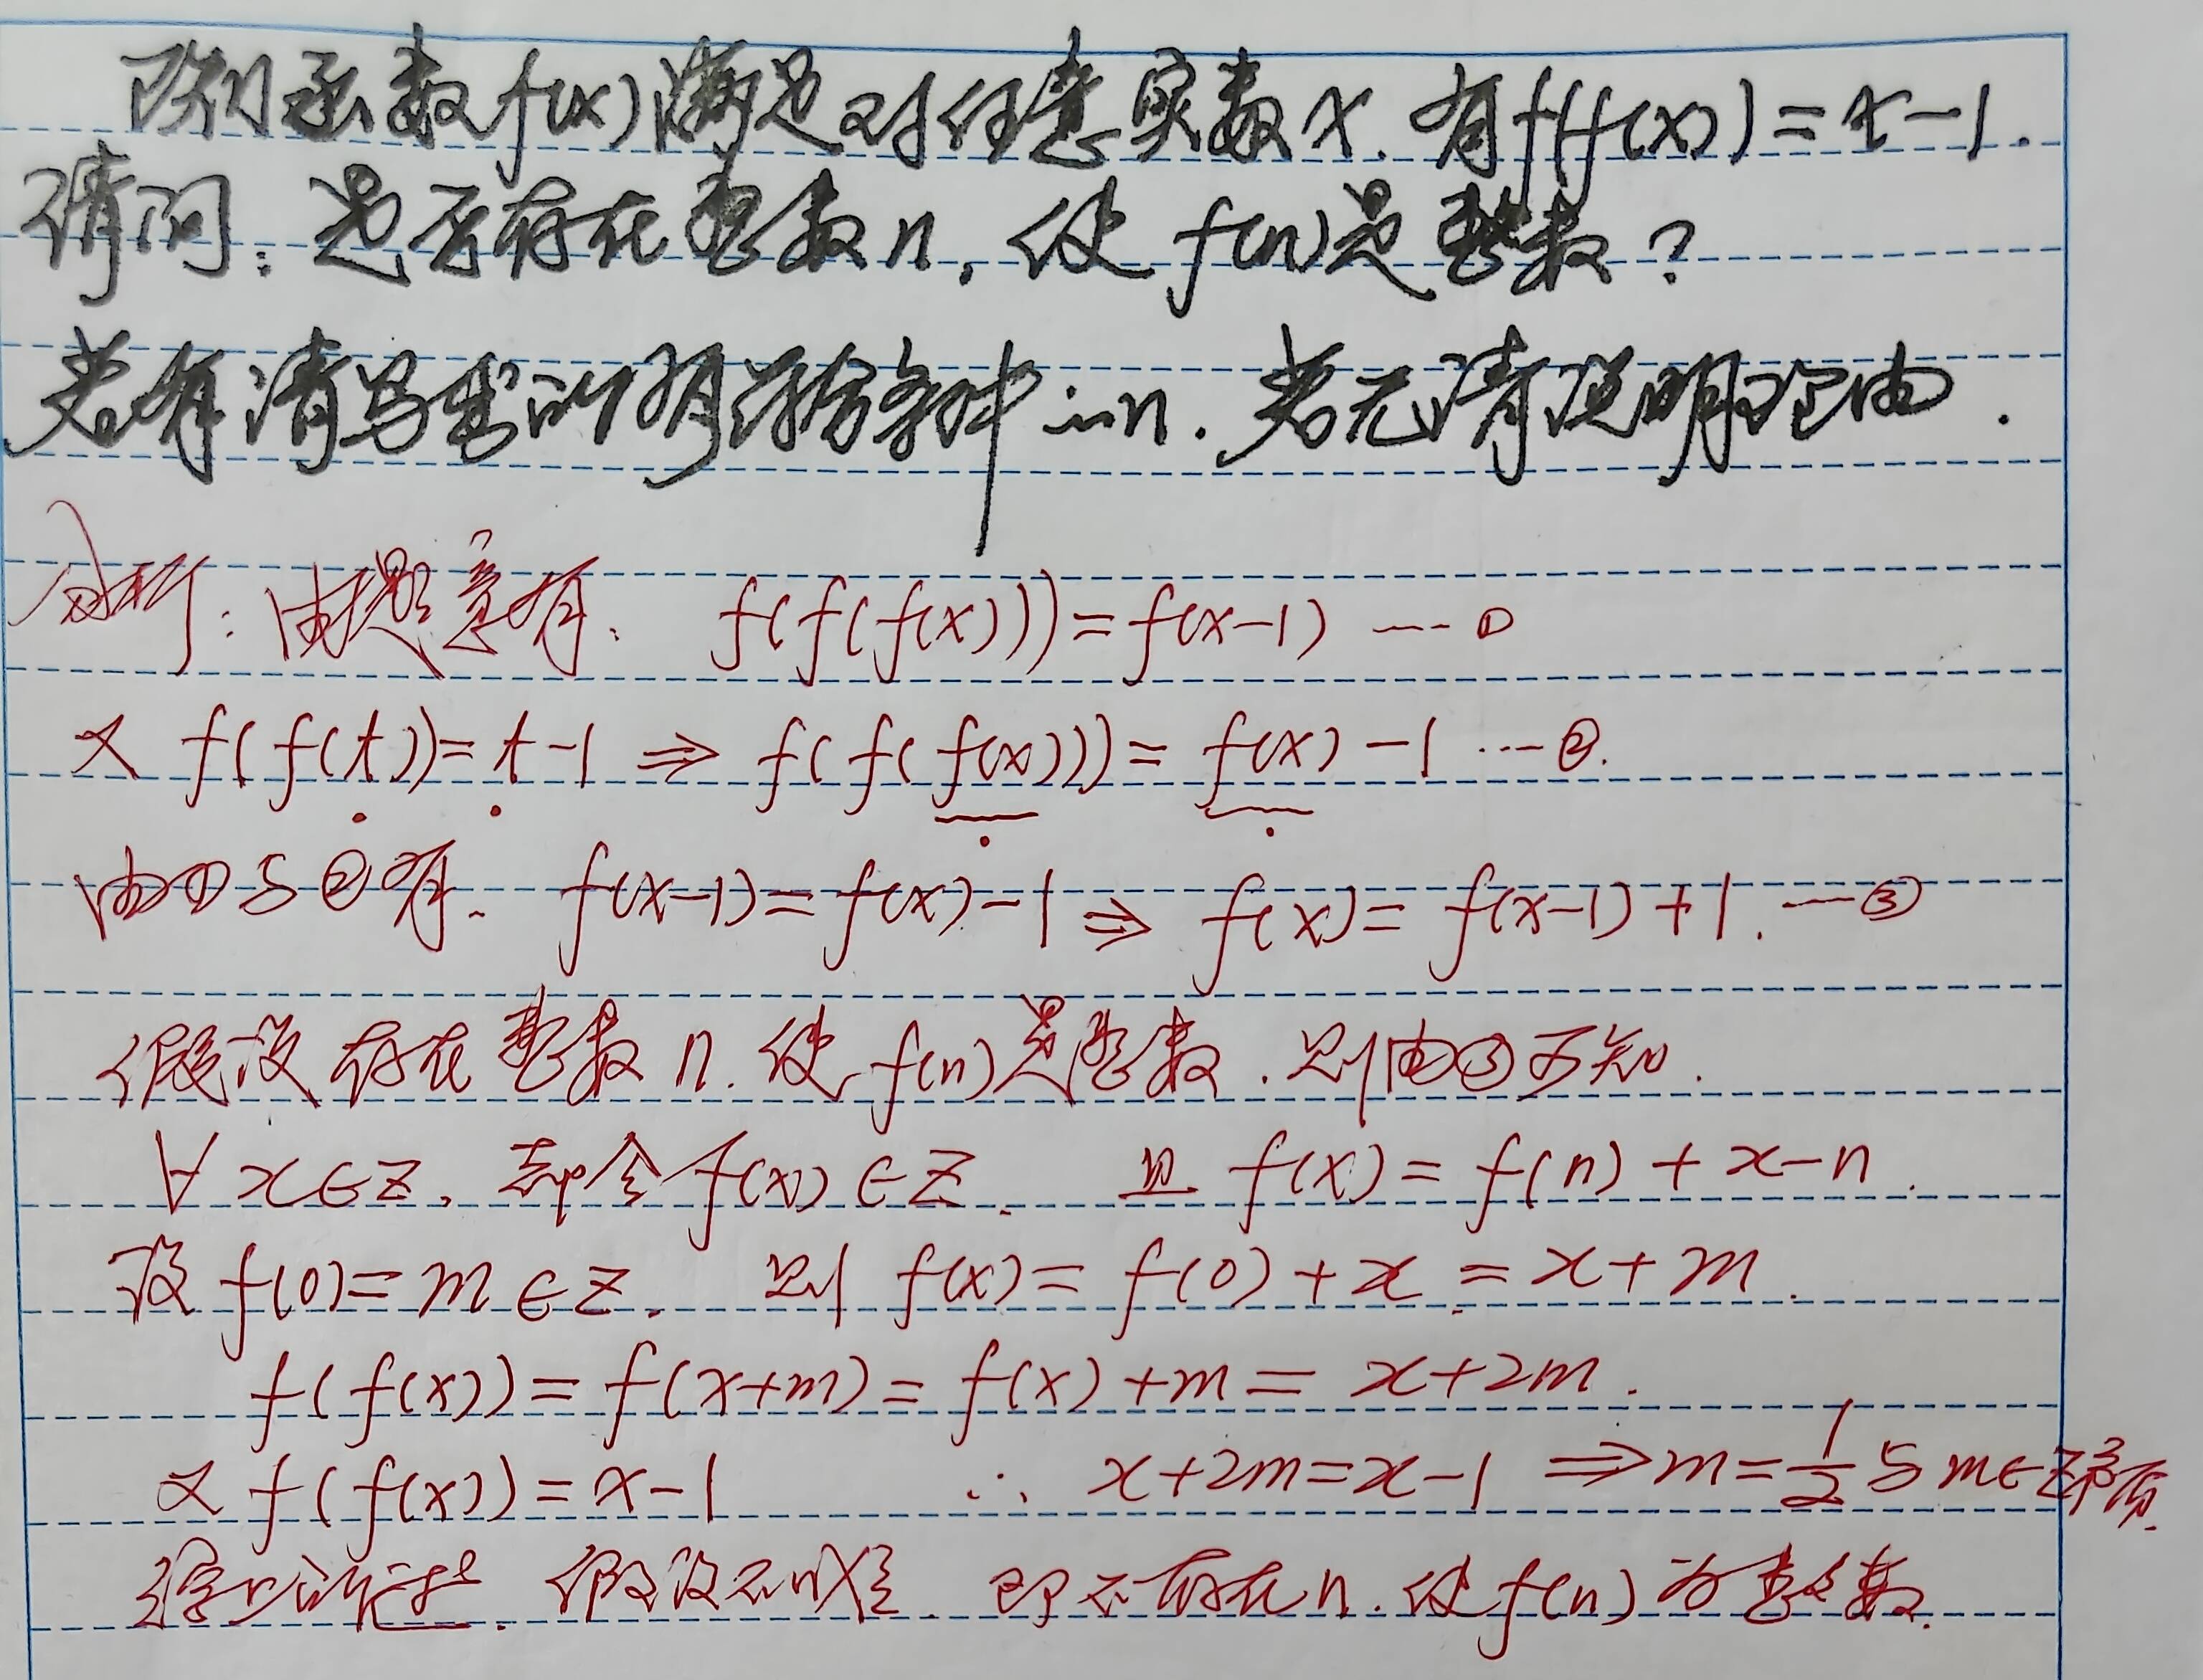 已知函数f(x)满足对任意实数x.有f(f(x))=x-1.
请问:是否存在整数n,使f(n)是整数?
若有请写出所有符合条件的n.若无请说明理由.
分析:由题意有. f(f(f(x)))=f(x-1) ---①
又 f(f(t))=t-1 ⇒ f(f(f(x)))=f(x)-1 ---②.
由①与②有. f(x-1)=f(x)-1 ⇒ f(x)=f(x-1)+1. ---③
假设存在整数n.使f(n)是整数.则由③可知.
∀ x∈Z,都会f(x)∈Z. 且 f(x)=f(n)+x-n.
设f(0)=m∈Z. 则 f(x)=f(0)+x=x+m.
f(f(x))=f(x+m)=f(x)+m=x+2m.
又 f(f(x))=x-1 ∴ x+2m=x-1 ⇒m=1/2与m∈Z矛盾.
综上所述.假设不成立.即不存在n.使f(n)为整数.